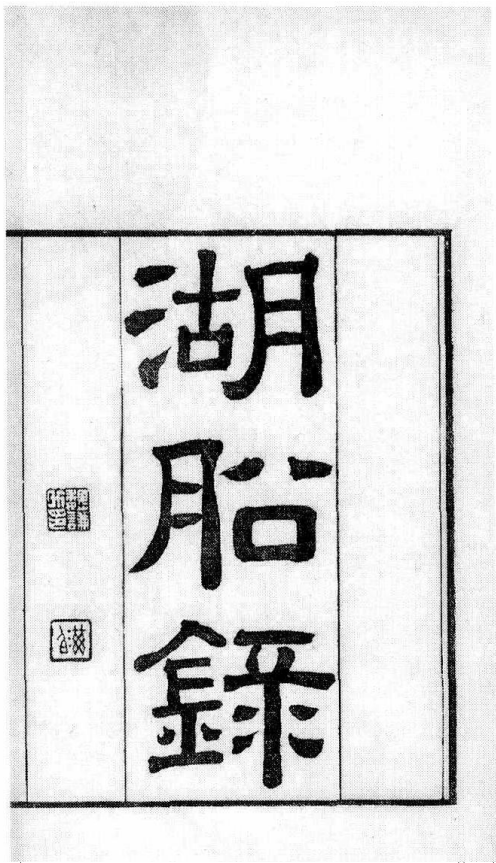 湖船錄